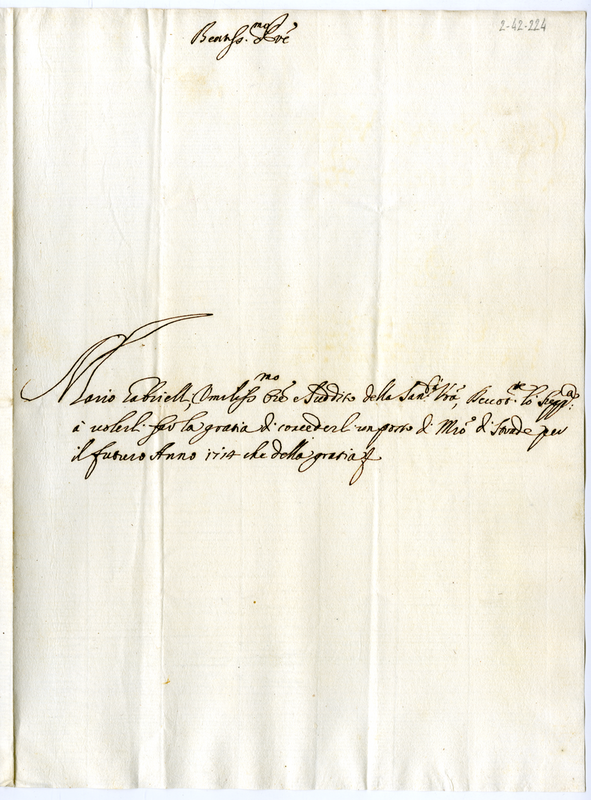 2-42-224
Beatiss.mo Pre
Mario Gabrielli, Umiliss.mo Ore e Suddito della San.tà Vra, Riccor.te lo Supp.ca
à volerli far la gratia di concederli un posto di Mro di Strade per
il futuro Anno 1714 che della gratia